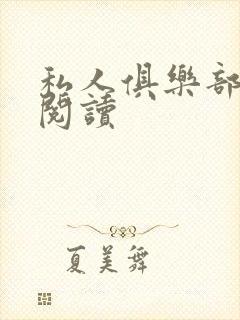 私人俱樂部
閱讀
夏美舞